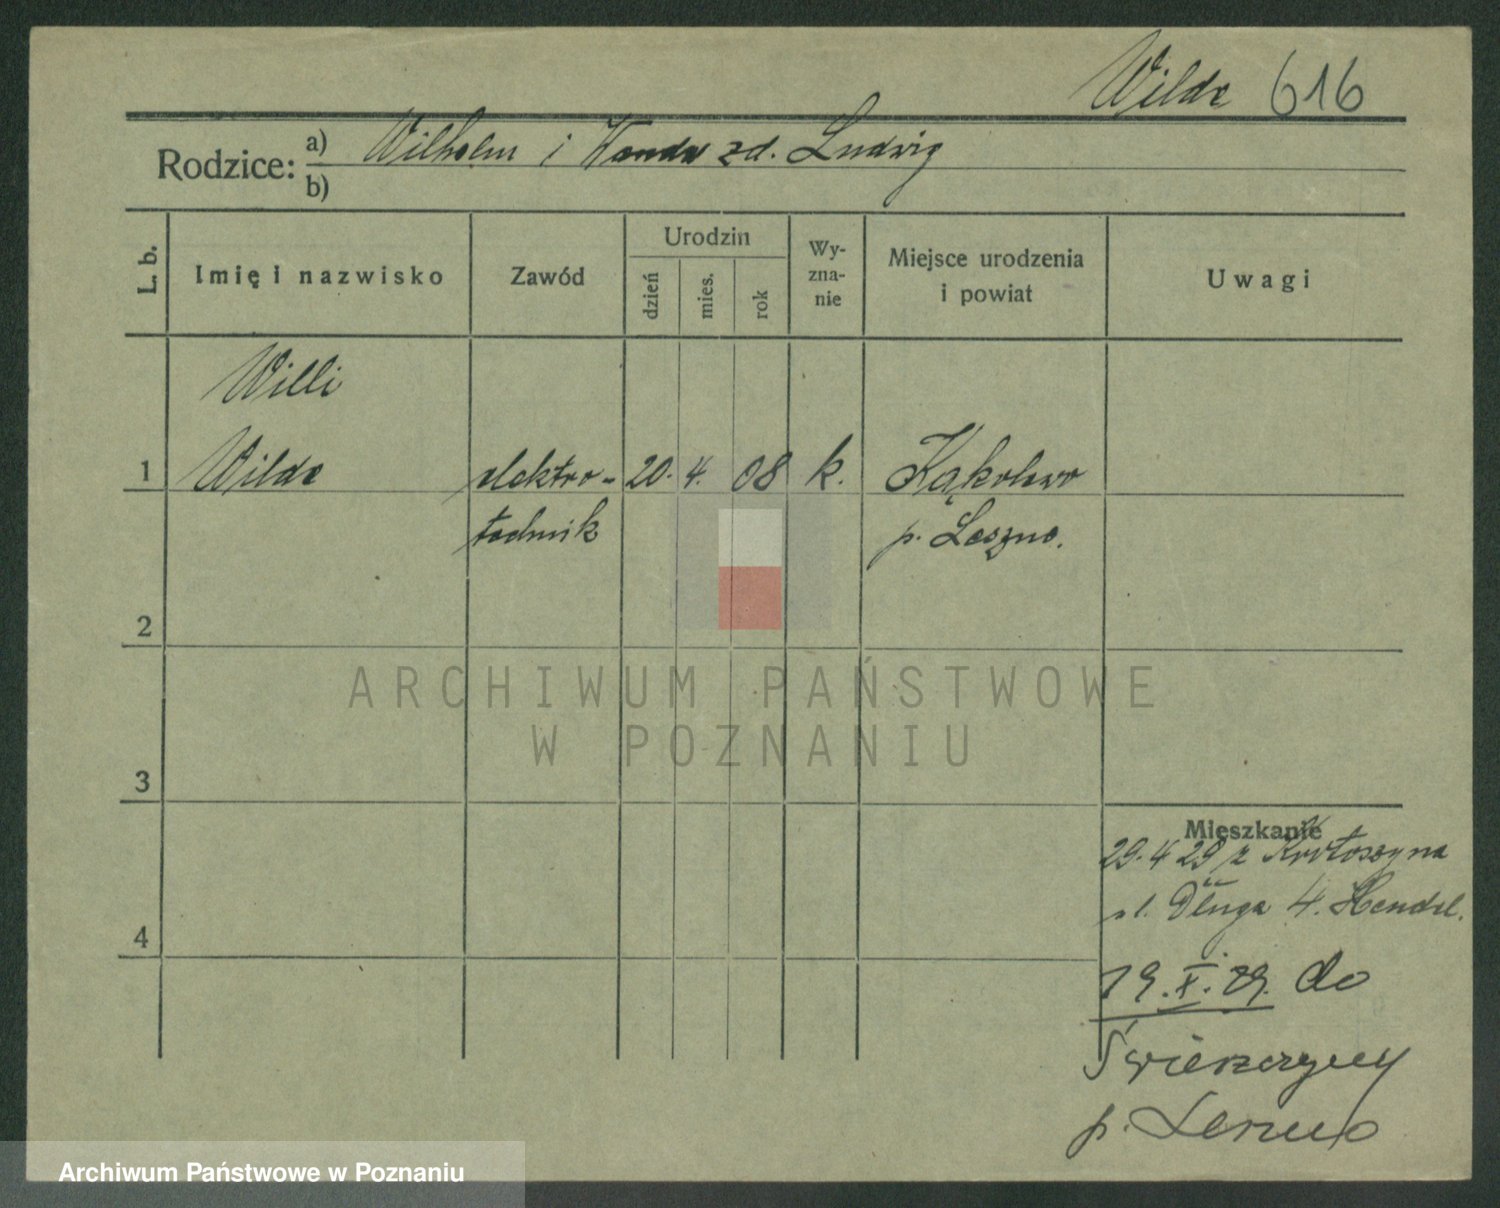 Wilde 616
Rodzice: a) Wilhelm i Wanda zd. Ludwig
b)
L. b. Imię i nazwisko Zawód Urodzin dzień mies. rok Wy-zna-nie Miejsce urodzenia i powiat Uwagi
Willi
1 Wilde elektro- 20. 4. 08 k. Kąkolewo
technik p. Leszno.
2
ARCHIWUM PAŃSTWOWE
W POZNANIU
3
Mieszkanie
29.4 29 z Krotoszyna
ul. Długa 4. Hendel.
4
19.X.29. do
Święciechowy
p. Leszno
Archiwum Państwowe w Poznaniu